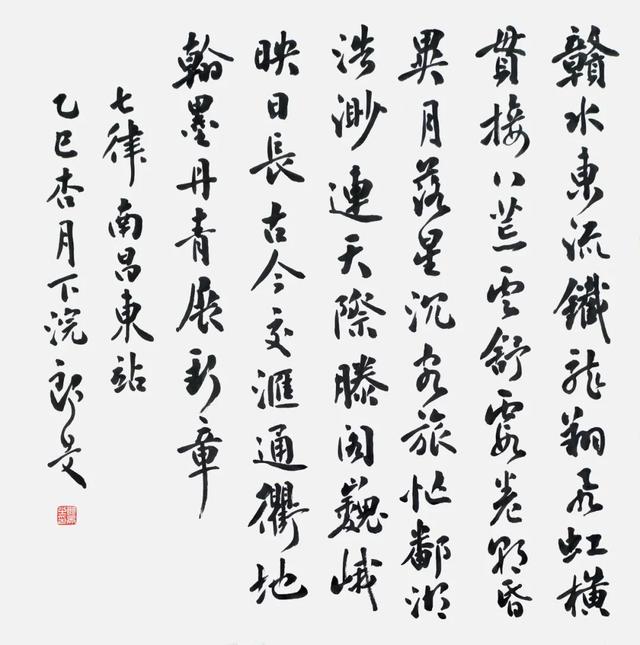 贛水東流鐵龙翔飛虹橫
貫接八荒雲舒霞卷朝昏
異月落星沉客旅忙鄱湖
浩渺連天際滕閣巍峨
映日長古今交滙通衢地
翰墨丹青展新章
七律南昌東站
乙巳杏月下浣郎